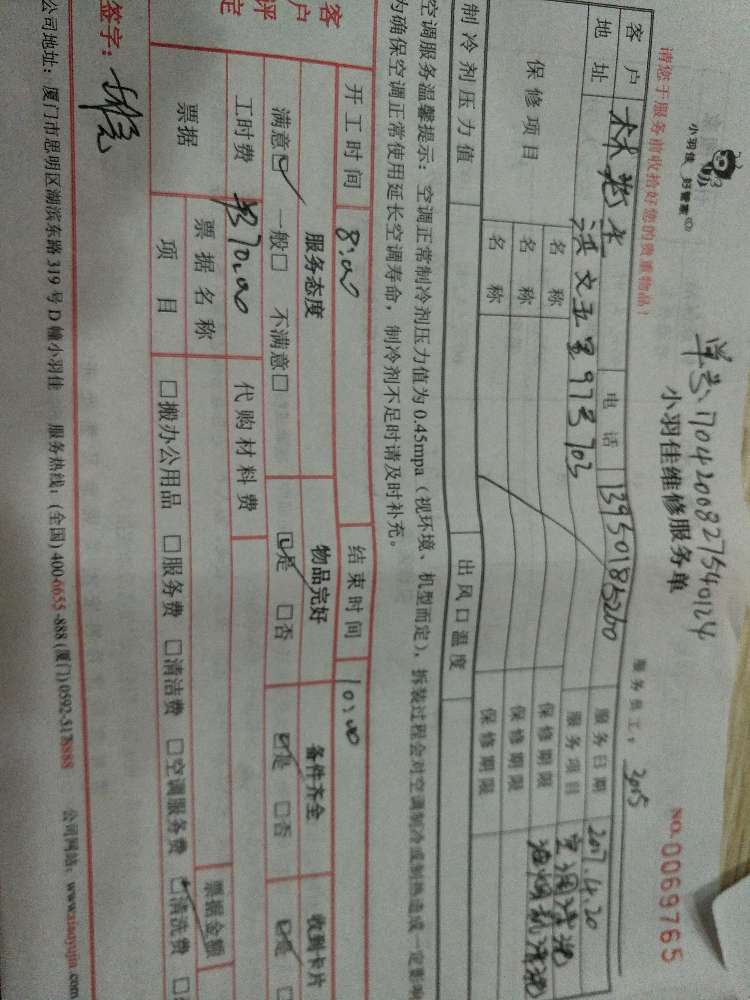 小羽佳 好管家
单号:1704200827540124
小羽佳维修服务单
NO.0069765
请您于服务前收拾好您的贵重物品!
服务员工:
客户
电话
13950185260
服务日期 2017.4.20
地址
洪文五里97号703
服务项目 空调清洗
保修项目
名称
保修期限 油烟机清洗
名称
保修期限
名称
保修期限
制冷剂压力值
出风口温度
空调服务温馨提示:空调正常制冷剂压力值为0.45mpa(视环境、机型而定),拆装过程会对空调制冷或制热造成一定影响
为确保空调正常使用延长空调寿命,制冷剂不足时请及时补充。
开工时间 8:00
结束时间 10:00
客户评定
服务态度
物品完好
备件齐全
收到卡片
满意☑ 一般□ 不满意□
☑是 □否
☑是 □否
☑是 □
工时费 370.00
代购材料费
票据金额
票据
票据名称
项目
□搬办公用品 □服务费 □清洁费 □空调服务费 ☑清洗费 □
签字:
公司地址:厦门市思明区湖滨东路319号D幢小羽佳 服务热线:(全国)400-6655-888(厦门)0592-5178888 公司网站:www.xiaoyujia.com